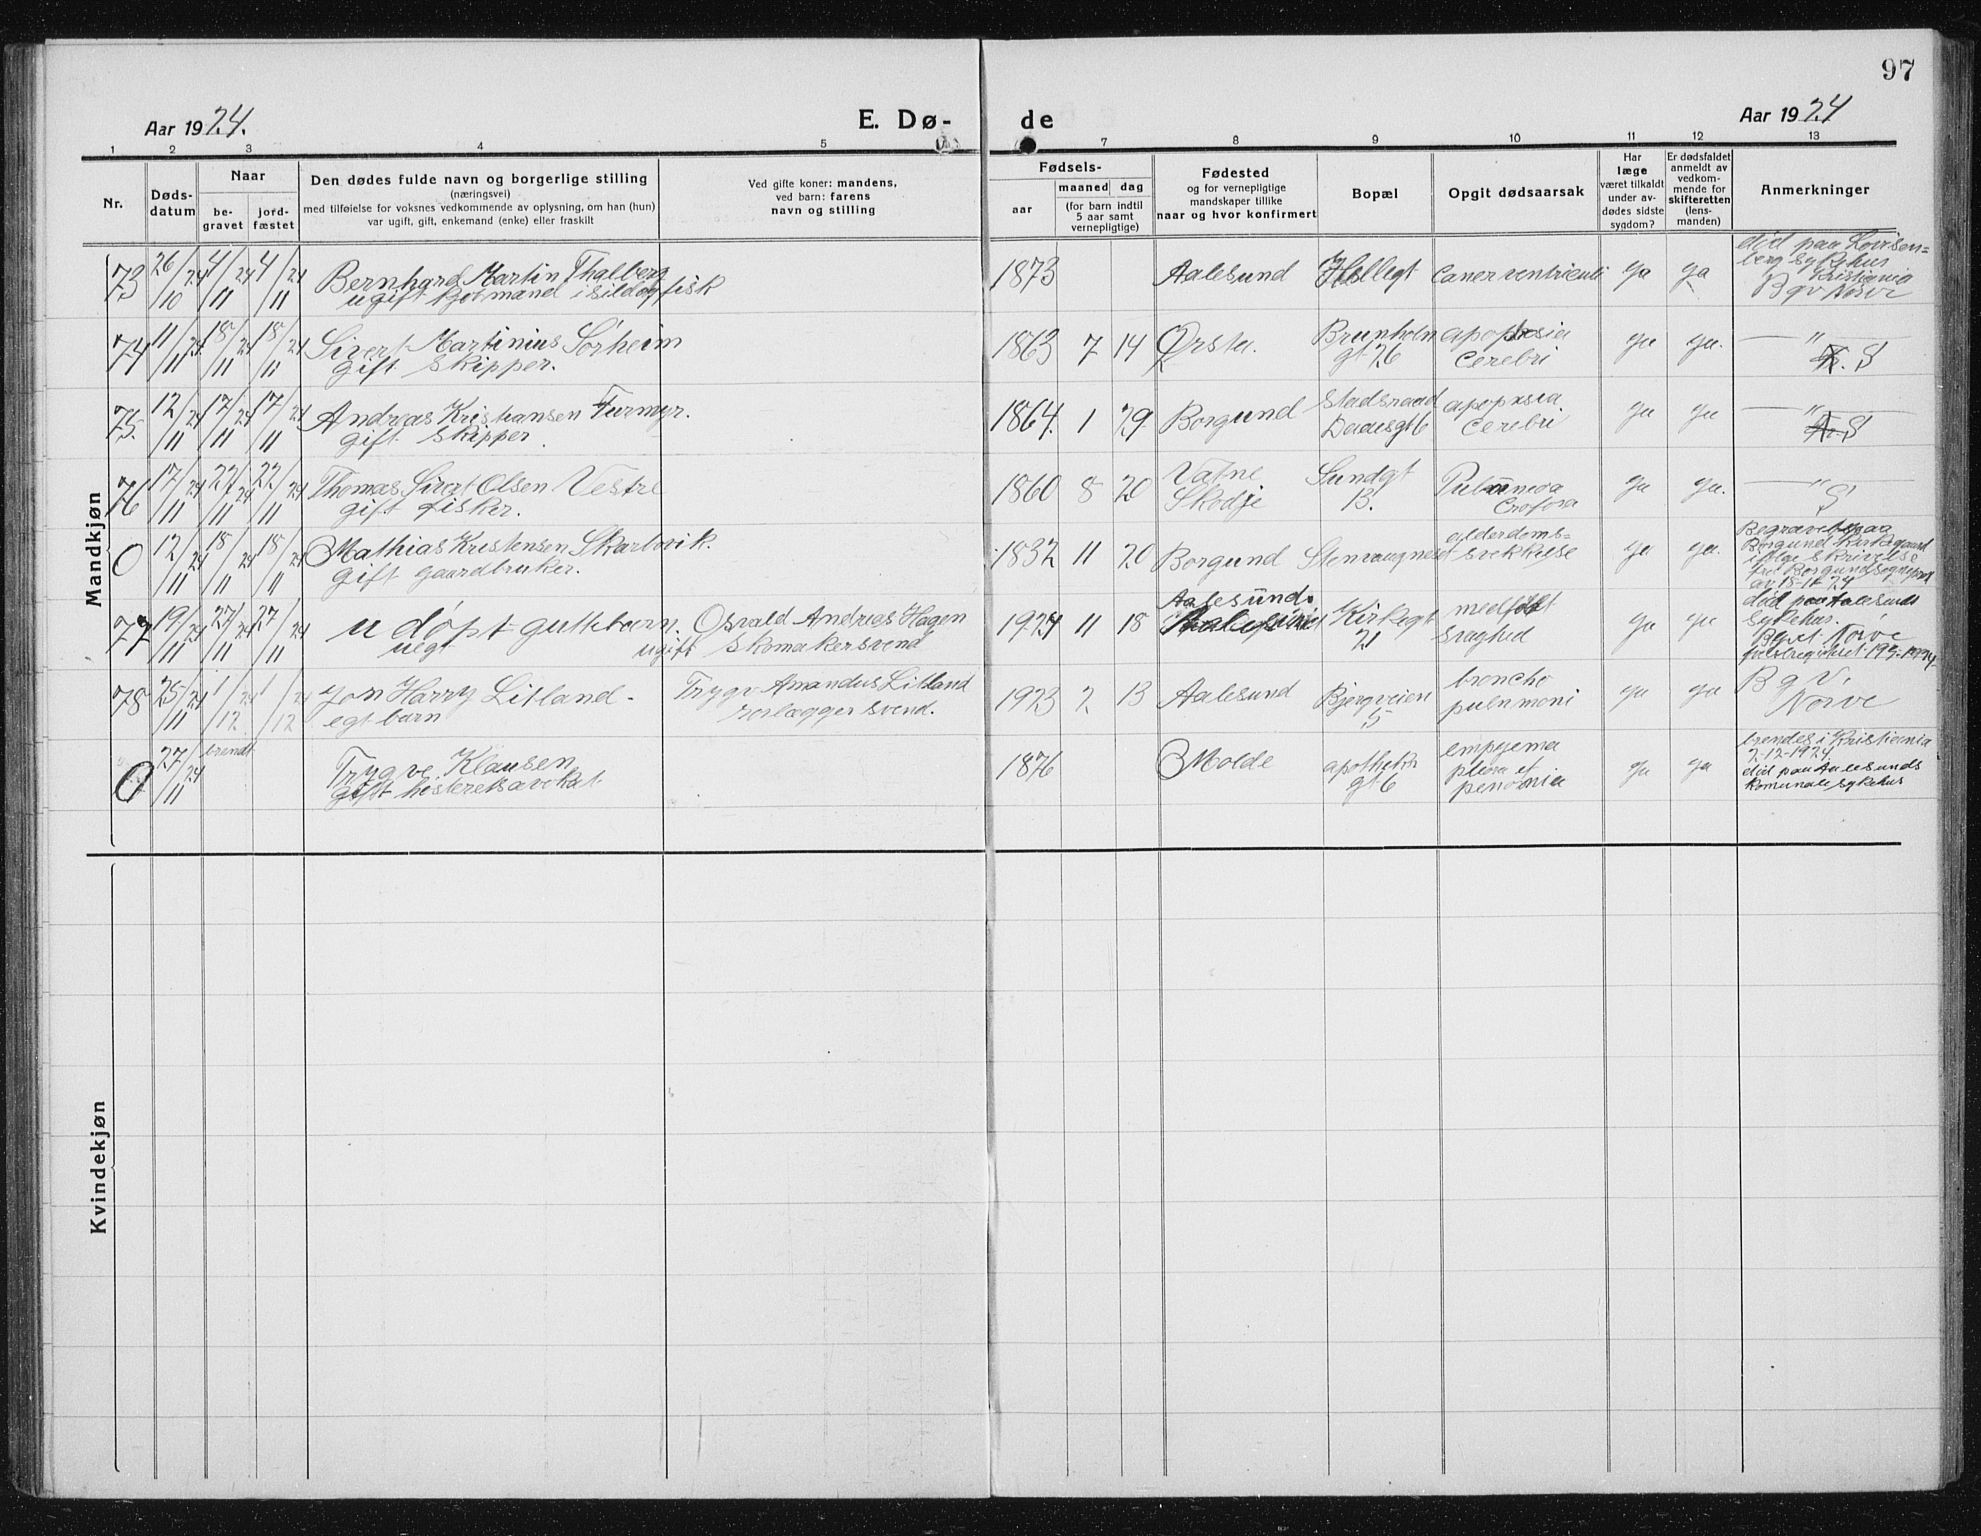 97
Aar 1924.
E. Dø-
de
Aar 1924
1 2 3 4 5
7 8 9 10 11 12 13
Nr.
Døds-
datum
Naar
be-
gravet
jord-
fæstet
Den dødes fulde navn og borgerlige stilling
(næringsvei)
med tilføielse for voksnes vedkommende av oplysning, om han (hun)
var ugift, gift, enkemand (enke) eller fraskilt
Ved gifte koner: mandens,
ved barn: farens
navn og stilling
Fødsels-
aar
maaned
dag
(for barn indtil
5 aar samt
vernepligtige)
Fødested
og for vernepligtige
mandskaper tillike
naar og hvor konfirmert
Bopæl
Opgit dødsaarsak
Har
læge
været tilkaldt
under av-
dødes sidste
sygdom?
Er dødsfaldet
anmeldt av
vedkom-
mende for
skifteretten
(lens-
manden)
Anmerkninger
Mandkjøn
73 26/10 24 4/11 24 4/11 24 Bernhard Martin Thalberg 1873 Aalesund Hellegt ja ja død paa Lovisen=
ugift formand i sild og fisk berg sykehus
Kristiania
Bgv Nørve
74 11/11 24 18/11 24 18/11 24 Sivert Martinius Sørheim 1863 7 14 Ørsta. Brunholm apoplexia ja ja. — " —
gift skipper. gt 26 cerebri S
75. 12/11 24 17/11 24 17/11 24 Andreas Kristiansen Furmyr. 1864. 1 29 Borgund apoplexia ja ja — " —
gift skipper. cerebri S
76 17/11 24 22/11 24 22/11 24 Thomas Sivert Olsen Vestre 1860 8 20 Vatne Sundgt ja ja. — " —
gift fisker. Skodje 13. S
0 12/11 24 18/11 24 18/11 24 Mathias Kristensen Skarbøvik. 1832 11 20 Borgund Stenvaagneset alderdoms= ja ja. Begravet paa
gift gaardbruker. svekkelse Borgund Kirkegaard
i følge skrivelse
fra Borgund sognepret
av 18-11-24
77 19/11 24 27/11 24 27/11 24 udøpt guttebarn. Osvald Andreas Hagen 1924 11 18 Aalesund. Kirkegt medfødt ja ja død paa Aalesunds
uegt ugift skomakersvend 21 svaghed sykehus.
Bgvt Nørve
78 25/11 24 1/12 24 1/12 24 Jon Harry Litland - Trygv Amandus Litland 1923 2 13 Aalesund Bjergveien broncho ja ja Bgv,
egt barn rørlægger svend. 5 pulnmoni Nørve
0 27/11 24 brendt Trygve Klausen 1876 Molde apothekr empyema ja ja brendes i Kristiania
gift gt 6 pleura et 2-12-1924
død paa Aalesunds
komunale sykehus
Kvindekjøn